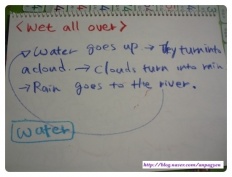 <Wet all over>
Water goes up → They turn into
a cloud. → Clouds turn into rain
→ Rain goes to the river.
water
http://blog.naver.com/anpagyou